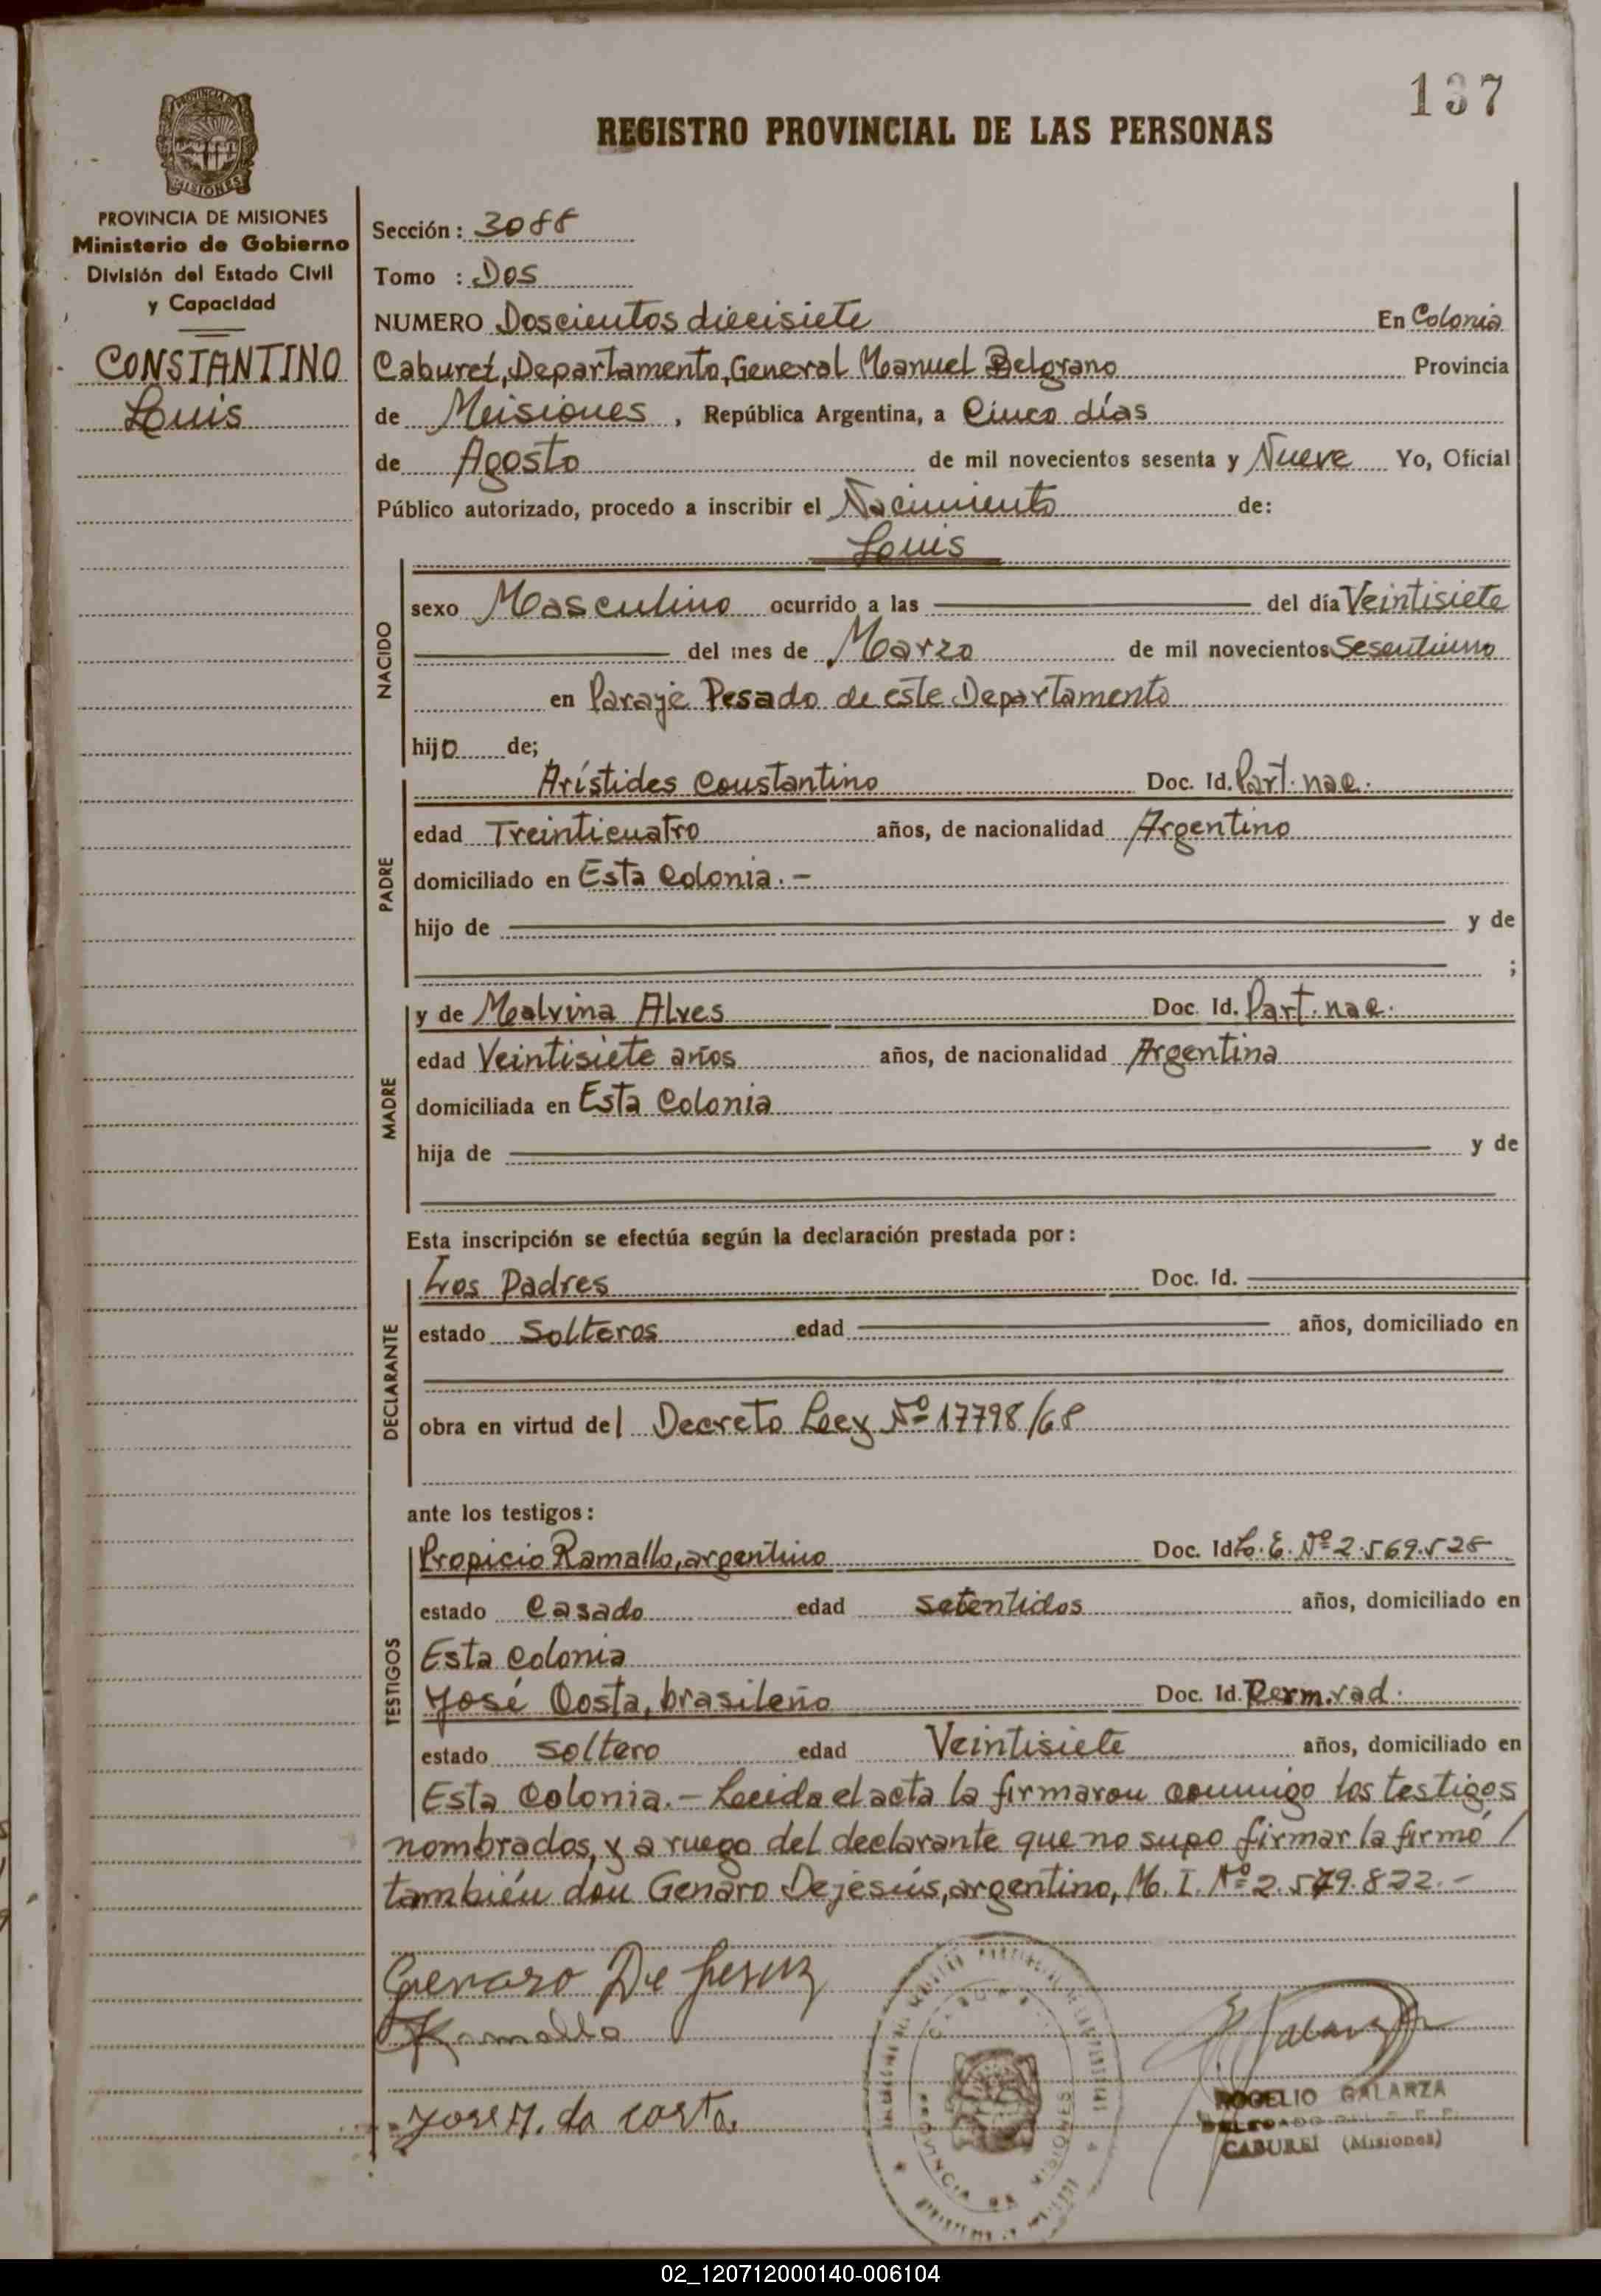 137
REGISTRO PROVINCIAL DE LAS PERSONAS
PROVINCIA DE MISIONES
Ministerio de Gobierno
División del Estado Civil
y Capacidad
CONSTANTINO
Luis
Sección: 3088
Tomo : Dos
NUMERO Doscientos diecisiete En Colonia
Cabureí, Departamento, General Manuel Belgrano Provincia
de Misiones, República Argentina, a Cinco días
de Agosto de mil novecientos sesenta y Nueve Yo, Oficial
Público autorizado, procedo a inscribir el Nacimiento de:
Luis
NACIDO
sexo Masculino ocurrido a las del día Veintisiete
del mes de Marzo de mil novecientos Sesentiuno
en Paraje Pesado de este Departamento
hijo de;
PADRE
Arístides Constantino Doc. Id. Part. nac.
edad Treinticuatro años, de nacionalidad Argentino
domiciliado en Esta Colonia.-
hijo de y de
;
MADRE
y de Malvina Alves Doc. Id. Part. nac.
edad Veintisiete años años, de nacionalidad Argentina
domiciliada en Esta Colonia
hija de y de
Esta inscripción se efectúa según la declaración prestada por:
DECLARANTE
Los Padres Doc. Id.
estado Solteros edad años, domiciliado en
obra en virtud del Decreto Ley Nº 17798/68
ante los testigos:
TESTIGOS
Propicio Ramallo, argentino Doc. Id. L. E. Nº 2.569.528
estado Casado edad setentidos años, domiciliado en
Esta Colonia
José Costa, brasileño Doc. Id. Perm. rad.
estado soltero edad Veintisiete años, domiciliado en
Esta Colonia.- Leida el acta la firmaron conmigo los testigos
nombrados, y a ruego del declarante que no supo firmar la firmó /
también don Genaro Dejesús, argentino, M. I. Nº 2.579.822.-
Genaro De Jesuz
Ramallo
Jose M. da costa
ROGELIO GALARZA
CABUREI (Misiones)
02_120712000140-006104